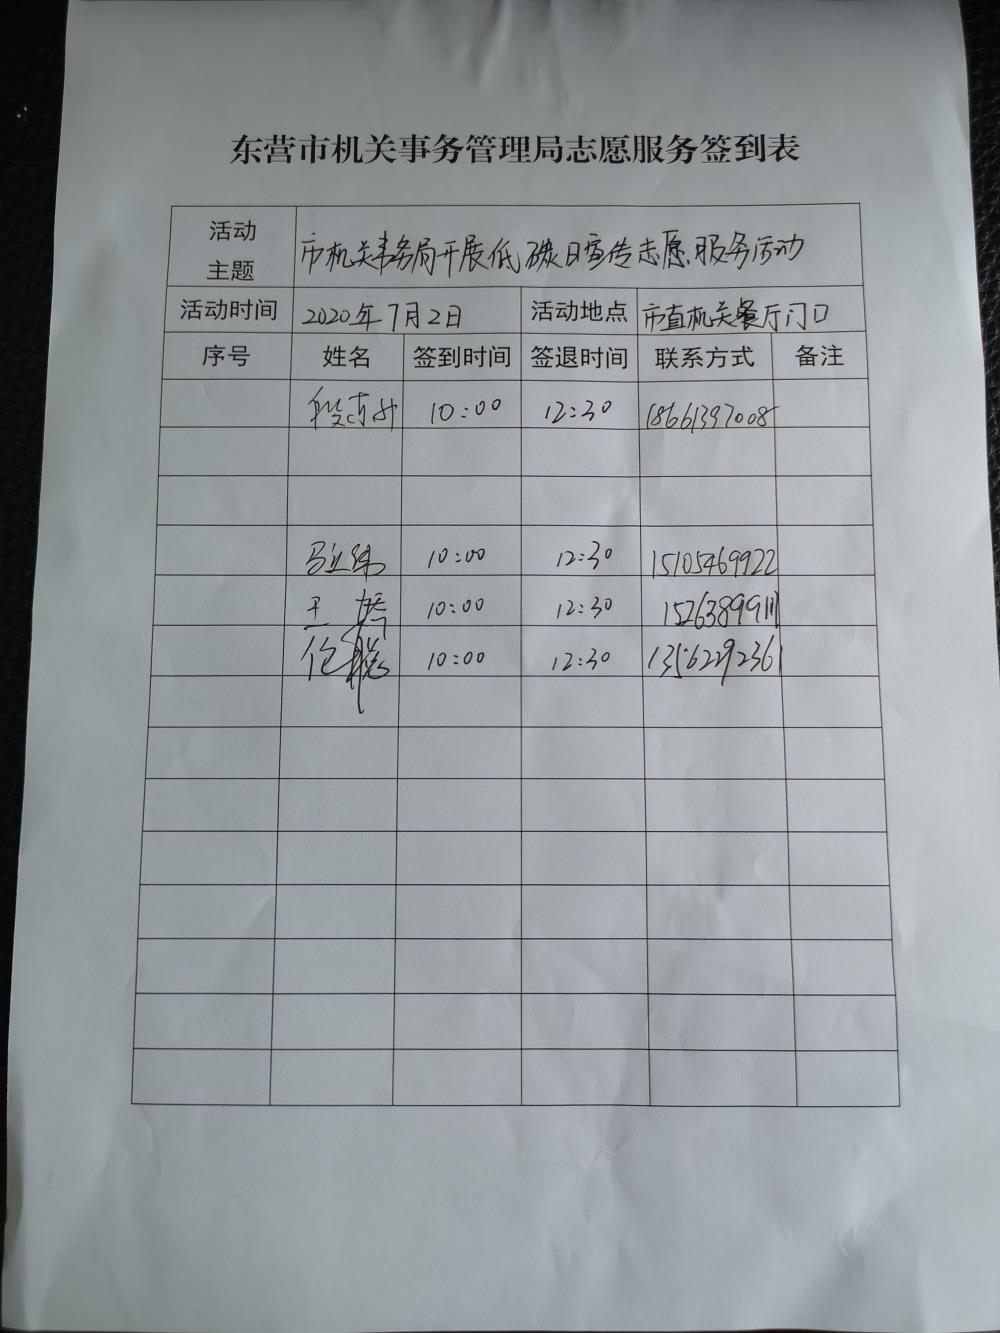 东营市机关事务管理局志愿服务签到表
活动
主题
市机关事务局开展低碳日宣传志愿服务活动
活动时间 2020年7月2日 活动地点 市直机关餐厅门口
序号 姓名 签到时间 签退时间 联系方式 备注
10:00 12:30 18661397008
10:00 12:30 15105469922
10:00 12:30
任聪 10:00 12:30 13562292361